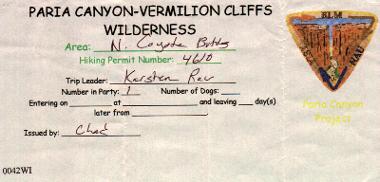 PARIA CANYON-VERMILION CLIFFS
WILDERNESS
Area: N. Coyote Buttes
Hiking Permit Number: 4610
Trip Leader: Karsten Rau
Number in Party: 1 Number of Dogs:
Entering on at and leaving day(s)
later from
Issued by: Chad
0042WI
BLM
Paria Canyon
Project